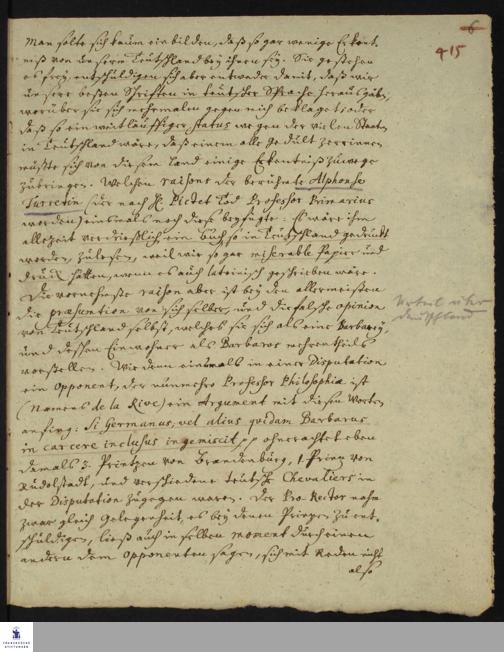 6
415
Man solte sich kaum einbilden, daß so gar wenige Erkent-
niß von unserm Teutschland bey ihnen sey. Sie gestehen
es frey, entschuldigen sich aber entweder damit, daß wir
unsere besten Schrifften in teutscher Sprache herausgäben,
worüber sie sich mehrmalen gegen mich beklaget; oder
daß so ein weitläuffiger status wegen der vielen Staaten
in Teutschland wäre, daß einem alle Gedult zerrinnen
müste sich von diesem Land einige Erkentniß zuwege
zubringen. Welchen raisons der berühmte Alphonse
Turretin (der nach H. Pictet Tod Professor Primarius
worden) einsmals noch diese beyfügte: es wäre ihm
allezeit verdrießlich, ein Buch, so in Teutschland gedruckt
worden, zulesen, weil wir so gar miserable Papier und
Druck hätten, wenn es auch lateinisch geschrieben wäre.
Die vornehmste raison aber ist bey den allermeisten
die præsumtion von sich selber, und die falsche opinion
von Teutschland selbst, welches sie sich als eine Barbarey,
und dessen Einwohner als Barbaros mehrentheils
vorstellen. Wie denn einsmals in einer Disputation
ein Opponent, der nunmehro Professor Philosophiæ ist
(Namens de la Rive) ein Argument mit diesen Worten
anfing: Si Germanus, vel alius quidam Barbarus
in carcere inclusus ingemiscit pp ohnerachtet eben
damals 3. Printzen von Brandenburg, 1. Prinz von
Rudolstadt, und verschiedene teutsche Chevaliers in
der Disputation zugegen waren. Der Pro-Rector nahm
zwar gleich Gelegenheit, es bey denen Prinzen zu ent-
schuldigen, ließ auch in selben moment durch einen
andern dem Opponenten sagen, sich mit Reden nicht
also
Urteil über
Deutschland
FRANCKESCHE
STIFTUNGEN